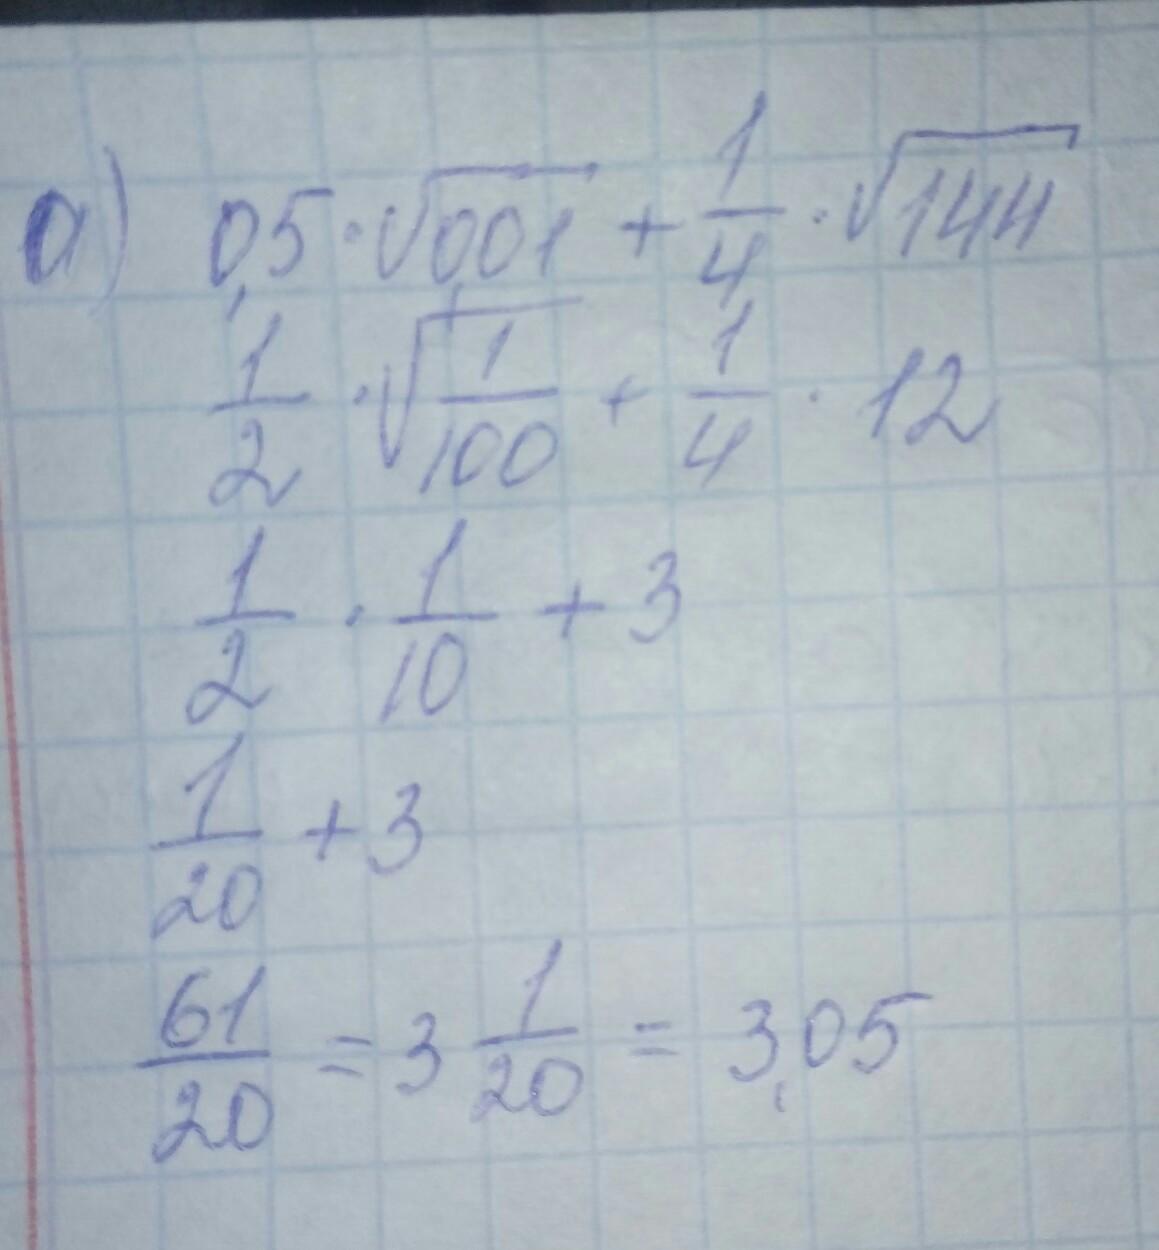 а) 0,5 · √0,01 + 1/4 · √144
1/2 · √1/100 + 1/4 · 12
1/2 · 1/10 + 3
1/20 + 3
61/20 = 3 1/20 = 3,05